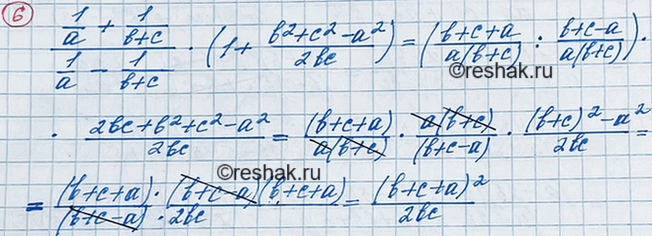 6) (1/a + 1/(b+c)) / (1/a - 1/(b+c)) · (1 + (b²+c²-a²)/2bc) = ((b+c+a)/a(b+c) : (b+c-a)/a(b+c)) ·
©reshak.ru
· (2bc+b²+c²-a²)/2bc = (b+c+a)/a(b+c) · a(b+c)/(b+c-a) · ((b+c)²-a²)/2bc =
©reshak.ru
= (b+c+a)·(b+c-a)(b+c+a)/(b+c-a)·2bc = (b+c+a)²/2bc